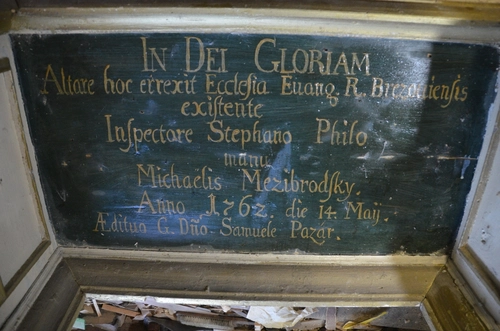 IN DEI GLORIAM
Altare hoc errexit Ecclesia Evang. R. Brezaviensis
existente
Inspectore Stephano Philo
manu
Michaëlis Mezibrodsky.
Anno 1762. die 14. Maij.
Ædituo G. Dño. Samuele Pazár.